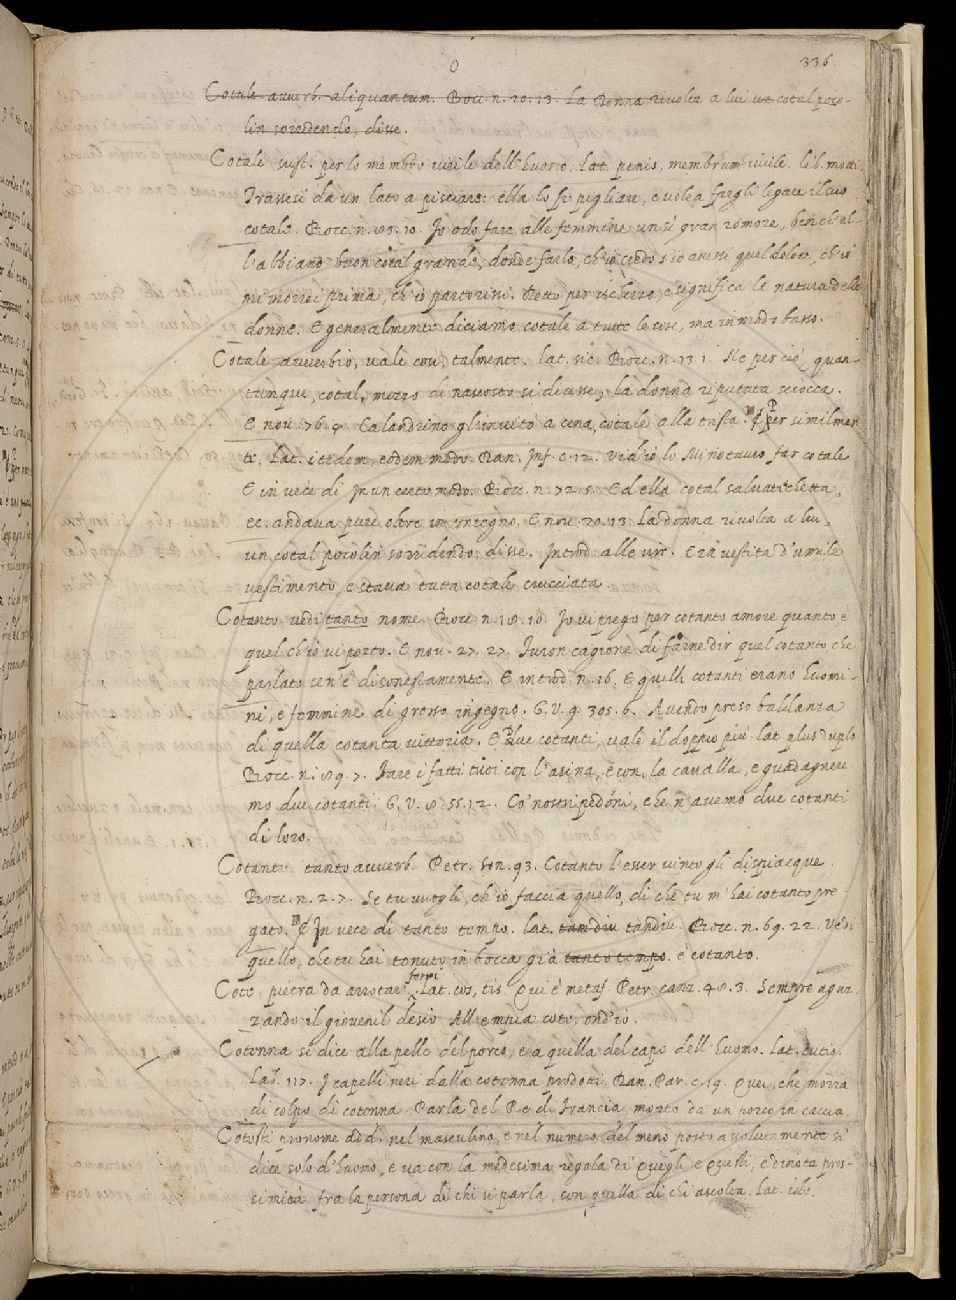 O
336
Cotale avverb. aliquantum. Bocc. n. 20. 13. La Donna rivolta a lui un cotal poco-
lin sorridendo, disse.
Cotale sust. per lo membro virile dell'huomo. Lat. penis, membrum virile. lib. mott.
Trassesi da un lato a pisciare: ella lo fe pigliare, e volea fargli legare il suo
cotale. Bocc. n. 83. 10. Io odo fare alle femmine un sì gran romore,
l'abbiano buon cotal grande, donde farlo, ch'io credo s'io avessi quel dolore, ch'io
mi morrei prima, ch'io partorissi. Detto per ischerzo, e significa le natura delle
donne. E generalmente diciamo cotale a tutte le cose, ma in modo basso.
Cotale avverbio, vale così, talmente. lat. sic. Bocc. n. 13. 1. Ne perciò, quan-
tunque, cotal, mezzo di nascosto si dicesse, la donna riputata sciocca.
E nov. 76. 9. Calandrino gl'invitò a cena, cotale alla trista. Per similmen
te. Lat. itidem, eodem modo. Dan. Inf. c. 12. Vid'io lo Minotauro far cotale
E in vece di In un certo modo. Bocc. n. 72. 5. Ed ella cotal salvatichetta,
ec. andava pure oltre in contegno. E nov. 20. 13. La donna rivolta a lui,
un cotal pocolin sorridendo, disse. Introd. alle vir. Era vestita d'umile
vestimento, e stava tutta cotale crucciata
Cotanto vedi tanto nome. Bocc. n. 18. 18. Io vi prego per cotanto amore quanto è
quel ch'io vi porto. E nov. 27. 27. Furon cagione di farne dir quel cotanto che
parlato cen'è disonestamente. E introd. n. 16. E quelli cotanti erano huomi-
ni, e femmine di grosso ingegno. G. V. 9. 305. 6. Avendo preso baldanza
di quella cotanta vittoria. E Due cotanti, vale il doppio più. lat. plus duplo
Bocc. n. 89. 7. Fare i fatti tuoi con l'asina, e con la cavalla, e guadagnere
mo due cotanti. G. V. 8. 55. 12. Co' nostri pedoni, che n'avemo due cotanti
di loro.
Cotanto tanto avverb. Petr. son. 93. Cotanto l'esser vinto gli dispiacque.
Bocc. n. 2. 7. Se tu vuogli, ch'io faccia quello, di che tu m'hai cotanto pre-
gato. In vece di tanto tempo. lat. tam diu tandiu. Bocc. n. 69. 22. Vedi
quello, che tu hai tenuto in bocca già tanto tempo. è cotanto.
Cote pietra da arrotar ferri. Lat. cos, tis. Qui è metaf. Petr. canz. 48. 3. Sempre aguz-
zando il giovenil desio All'empia cote, ond'io.
Cotenna si dice alla pelle del porco, e a quella del capo dell'huomo. Lat. cutis.
Lab. 117. I capelli neri dalla cotenna prodotti. Dan. Par. c. 19. Quei, che morrà
di colpo di cotenna. Parla del Re di Francia, morto da un porco in caccia.
Cotesti pronome add. nel masculino, e nel numero del meno posto assolutamente si
dice solo d'huomo, e va con la medesima regola di Quegli e Questi, e dinota pros-
simità, fra la persona di chi si parla, con quella di chi ascolta. Lat. iste.